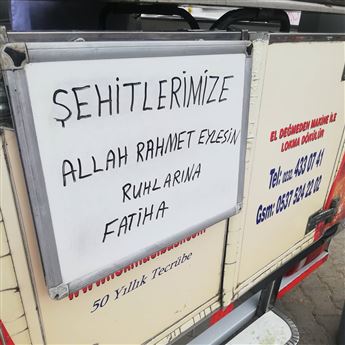 ŞEHİTLERİMİZE
ALLAH RAHMET EYLESİN
RUHLARINA
FATİHA
50 Yıllık Tecrübe
EL DEĞMEDEN MAKİNE İLE
LOKMA DÖKÜLÜR
Tel: 0232. 433 07 41
Gsm: 0537 524 22 02